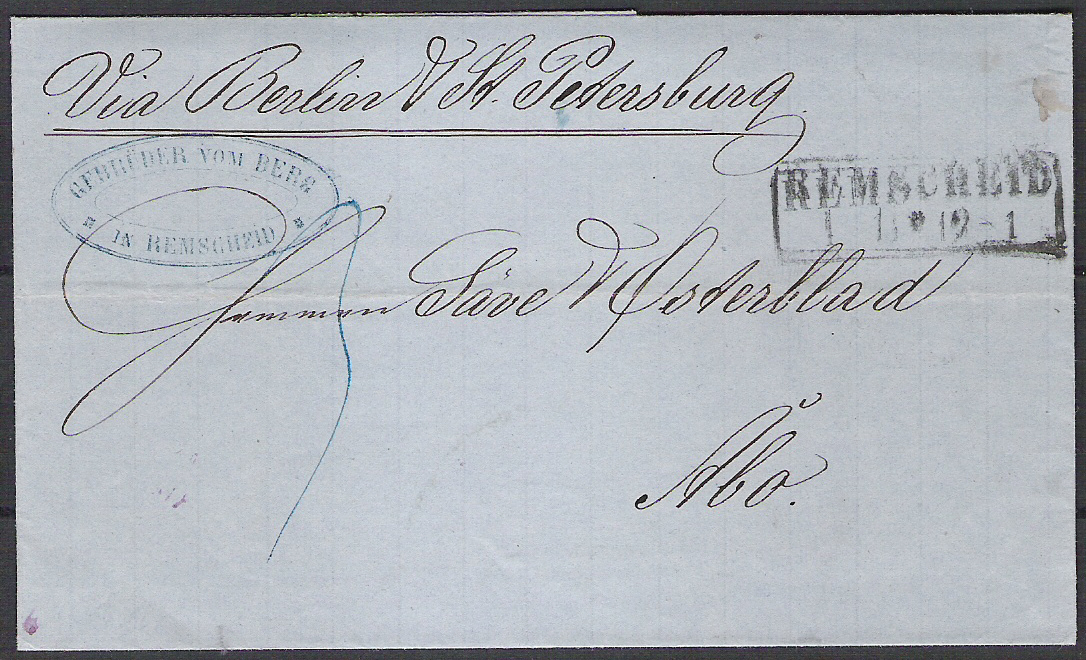 Via Berlin & St. Petersburg
GEBRÜDER VOM BERG
IN REMSCHEID
REMSCHEID
12-1
Herren Säve & Österblad
Åbo.